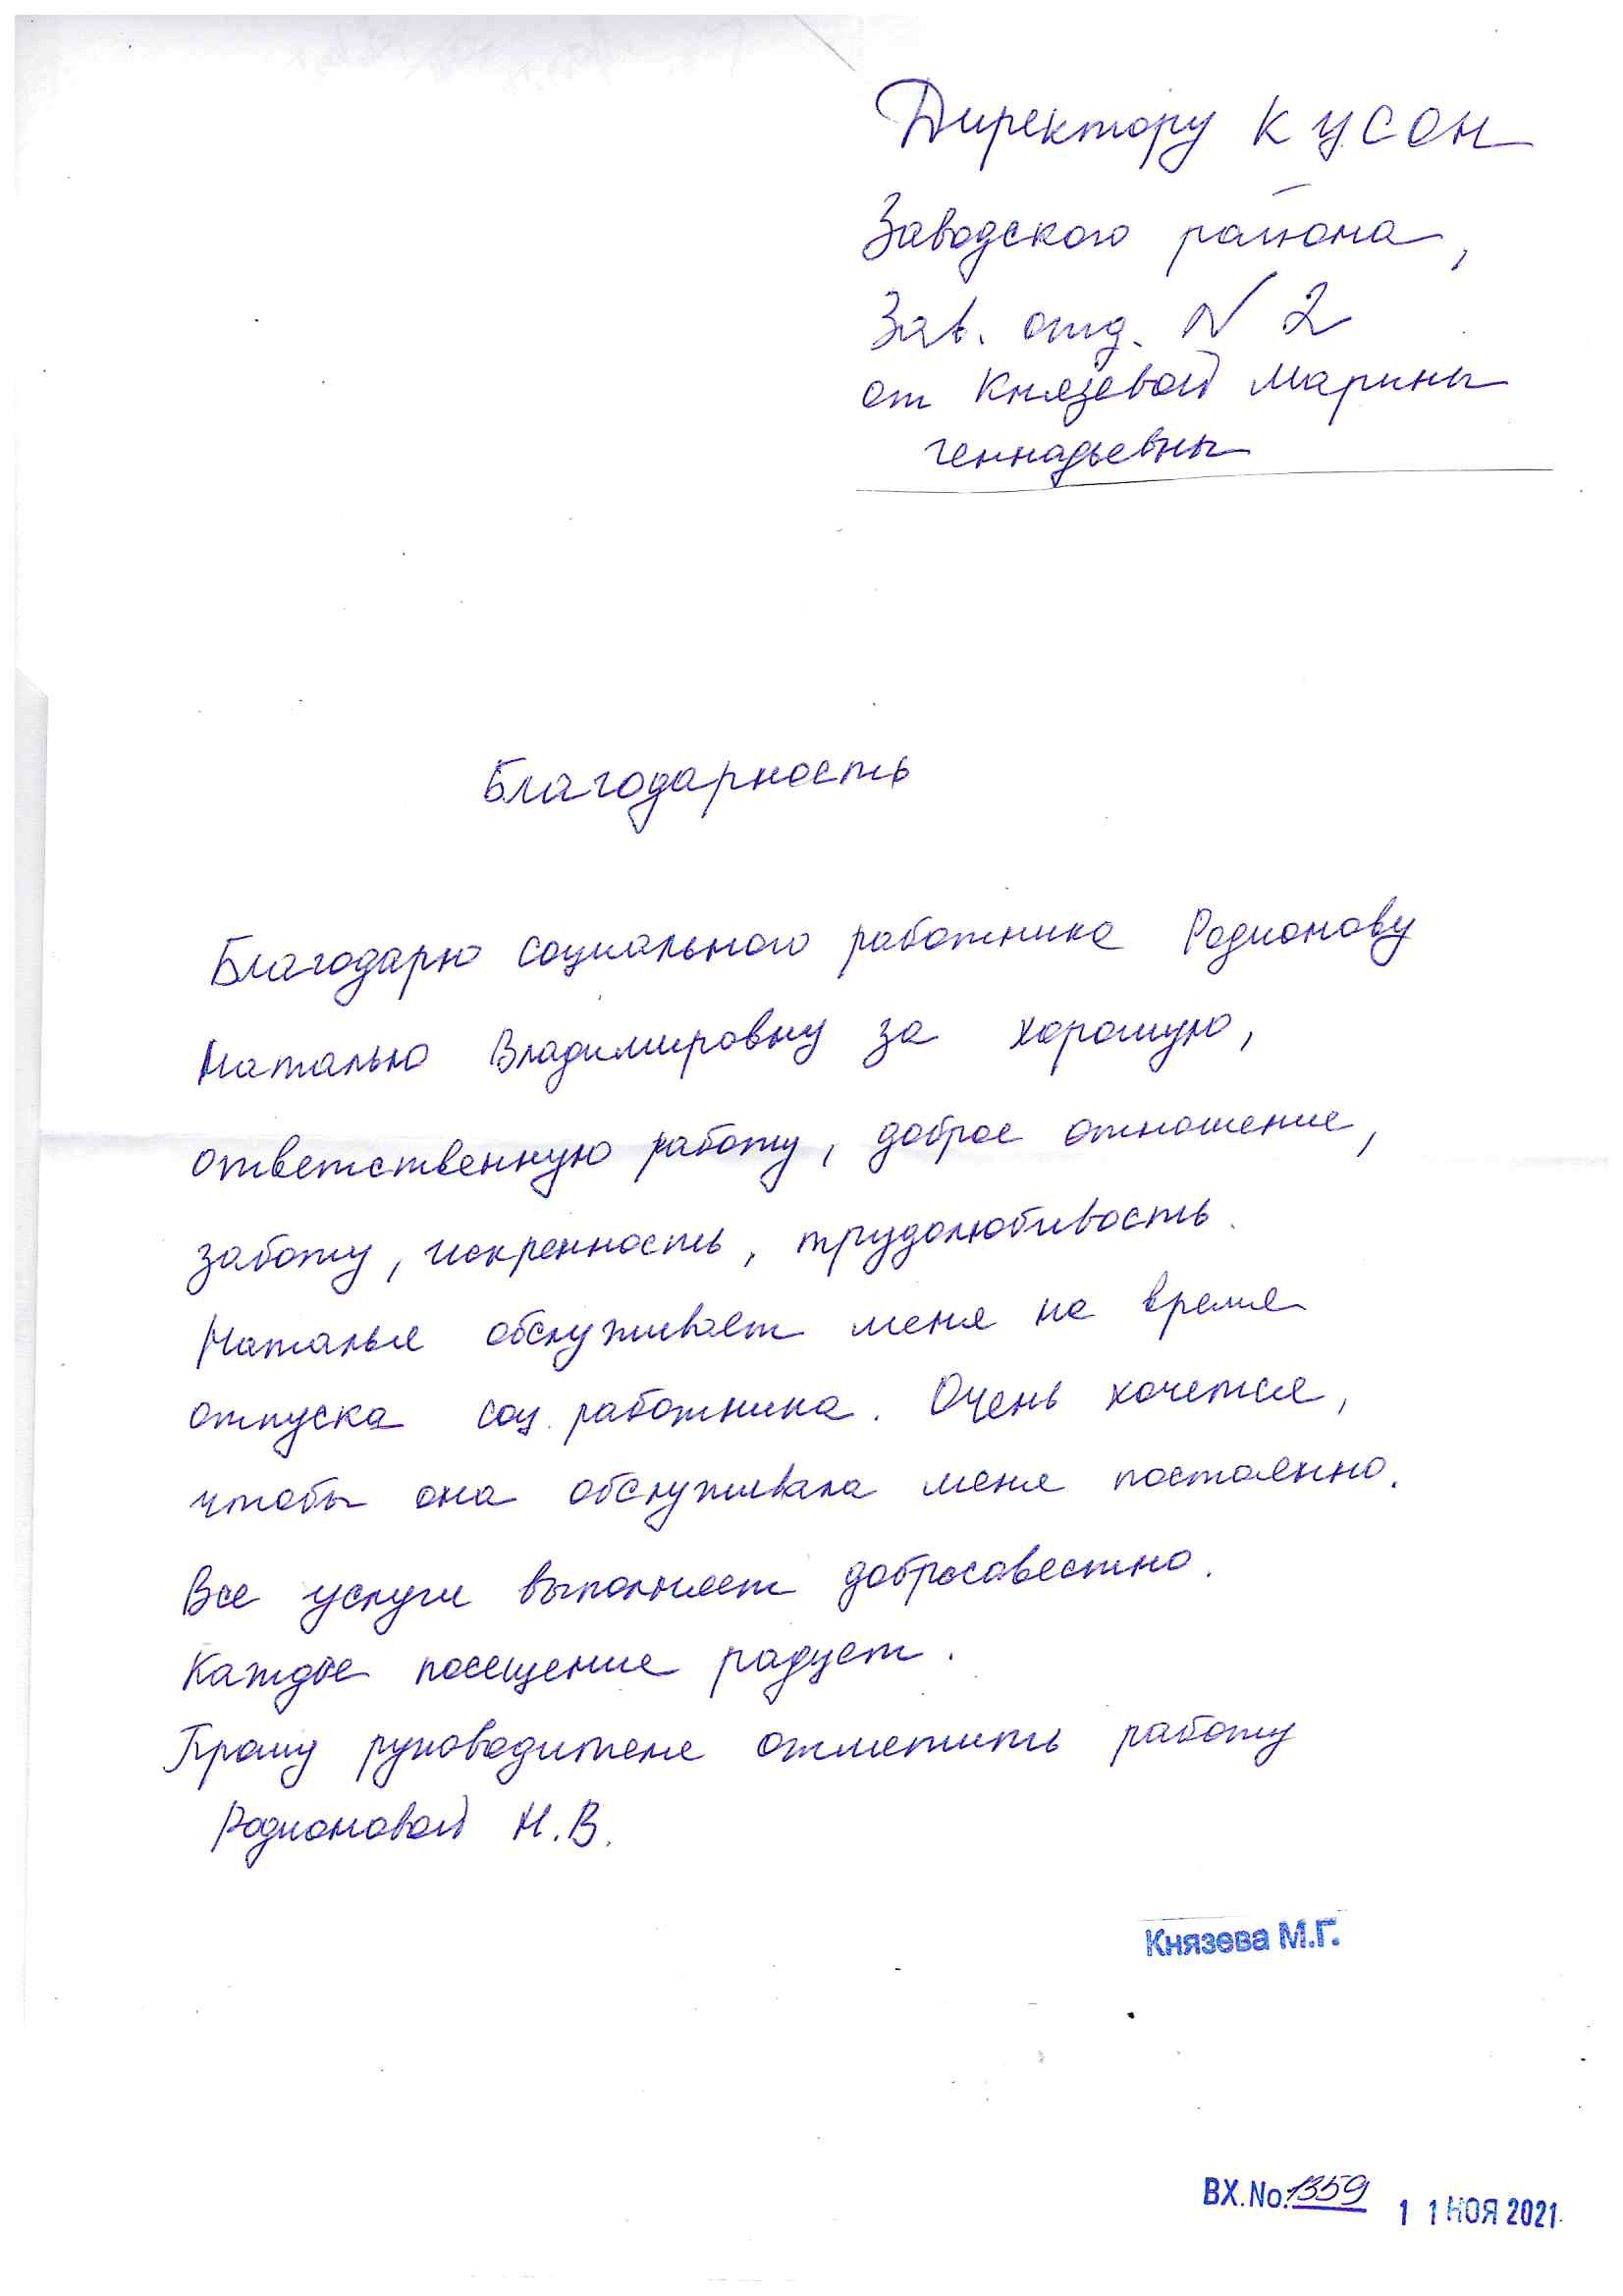 Директору КУСОН
Заводского района,
Зав. отд. N 2
от Князевой Марины
Геннадьевны
Благодарность
Благодарю социального работника Родионову
Наталью Владимировну за хорошую,
ответственную работу, доброе отношение,
заботу, искренность, трудолюбивость.
Наталья обслуживает меня на время
отпуска соц. работника. Очень хочется,
чтобы она обслуживала меня постоянно.
Все услуги выполняет добросовестно.
Каждое посещение радует.
Прошу руководителя отметить работу
Родионовой Н.В.
Князева М.Г.
ВХ.No. 1359 11 НОЯ 2021